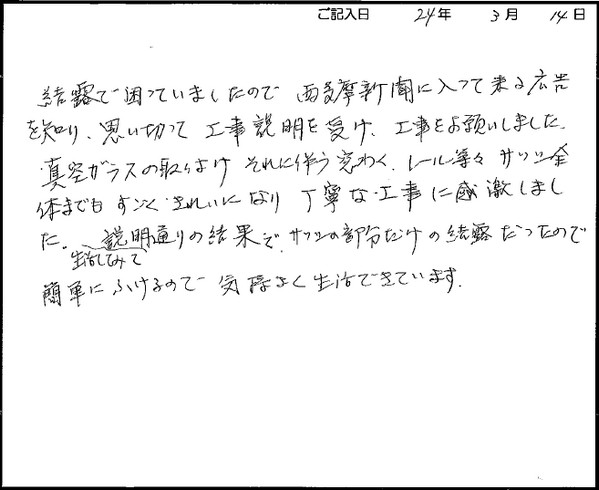 ご記入日 24年 3月 14日
結露で困っていましたので 西多摩新聞に入って来る広告
を知り、思い切って 工事説明を受け、工事をお願いしました。
真空ガラスの取り付け それに伴う窓わく、レール等々 サッシ全
体までも すごく きれいになり 丁寧な工事に感激しまし
た。 説明通りの結果で、サッシの部分だけの結露だったので
生活してみて
簡単にふけるので 気持よく生活できています。